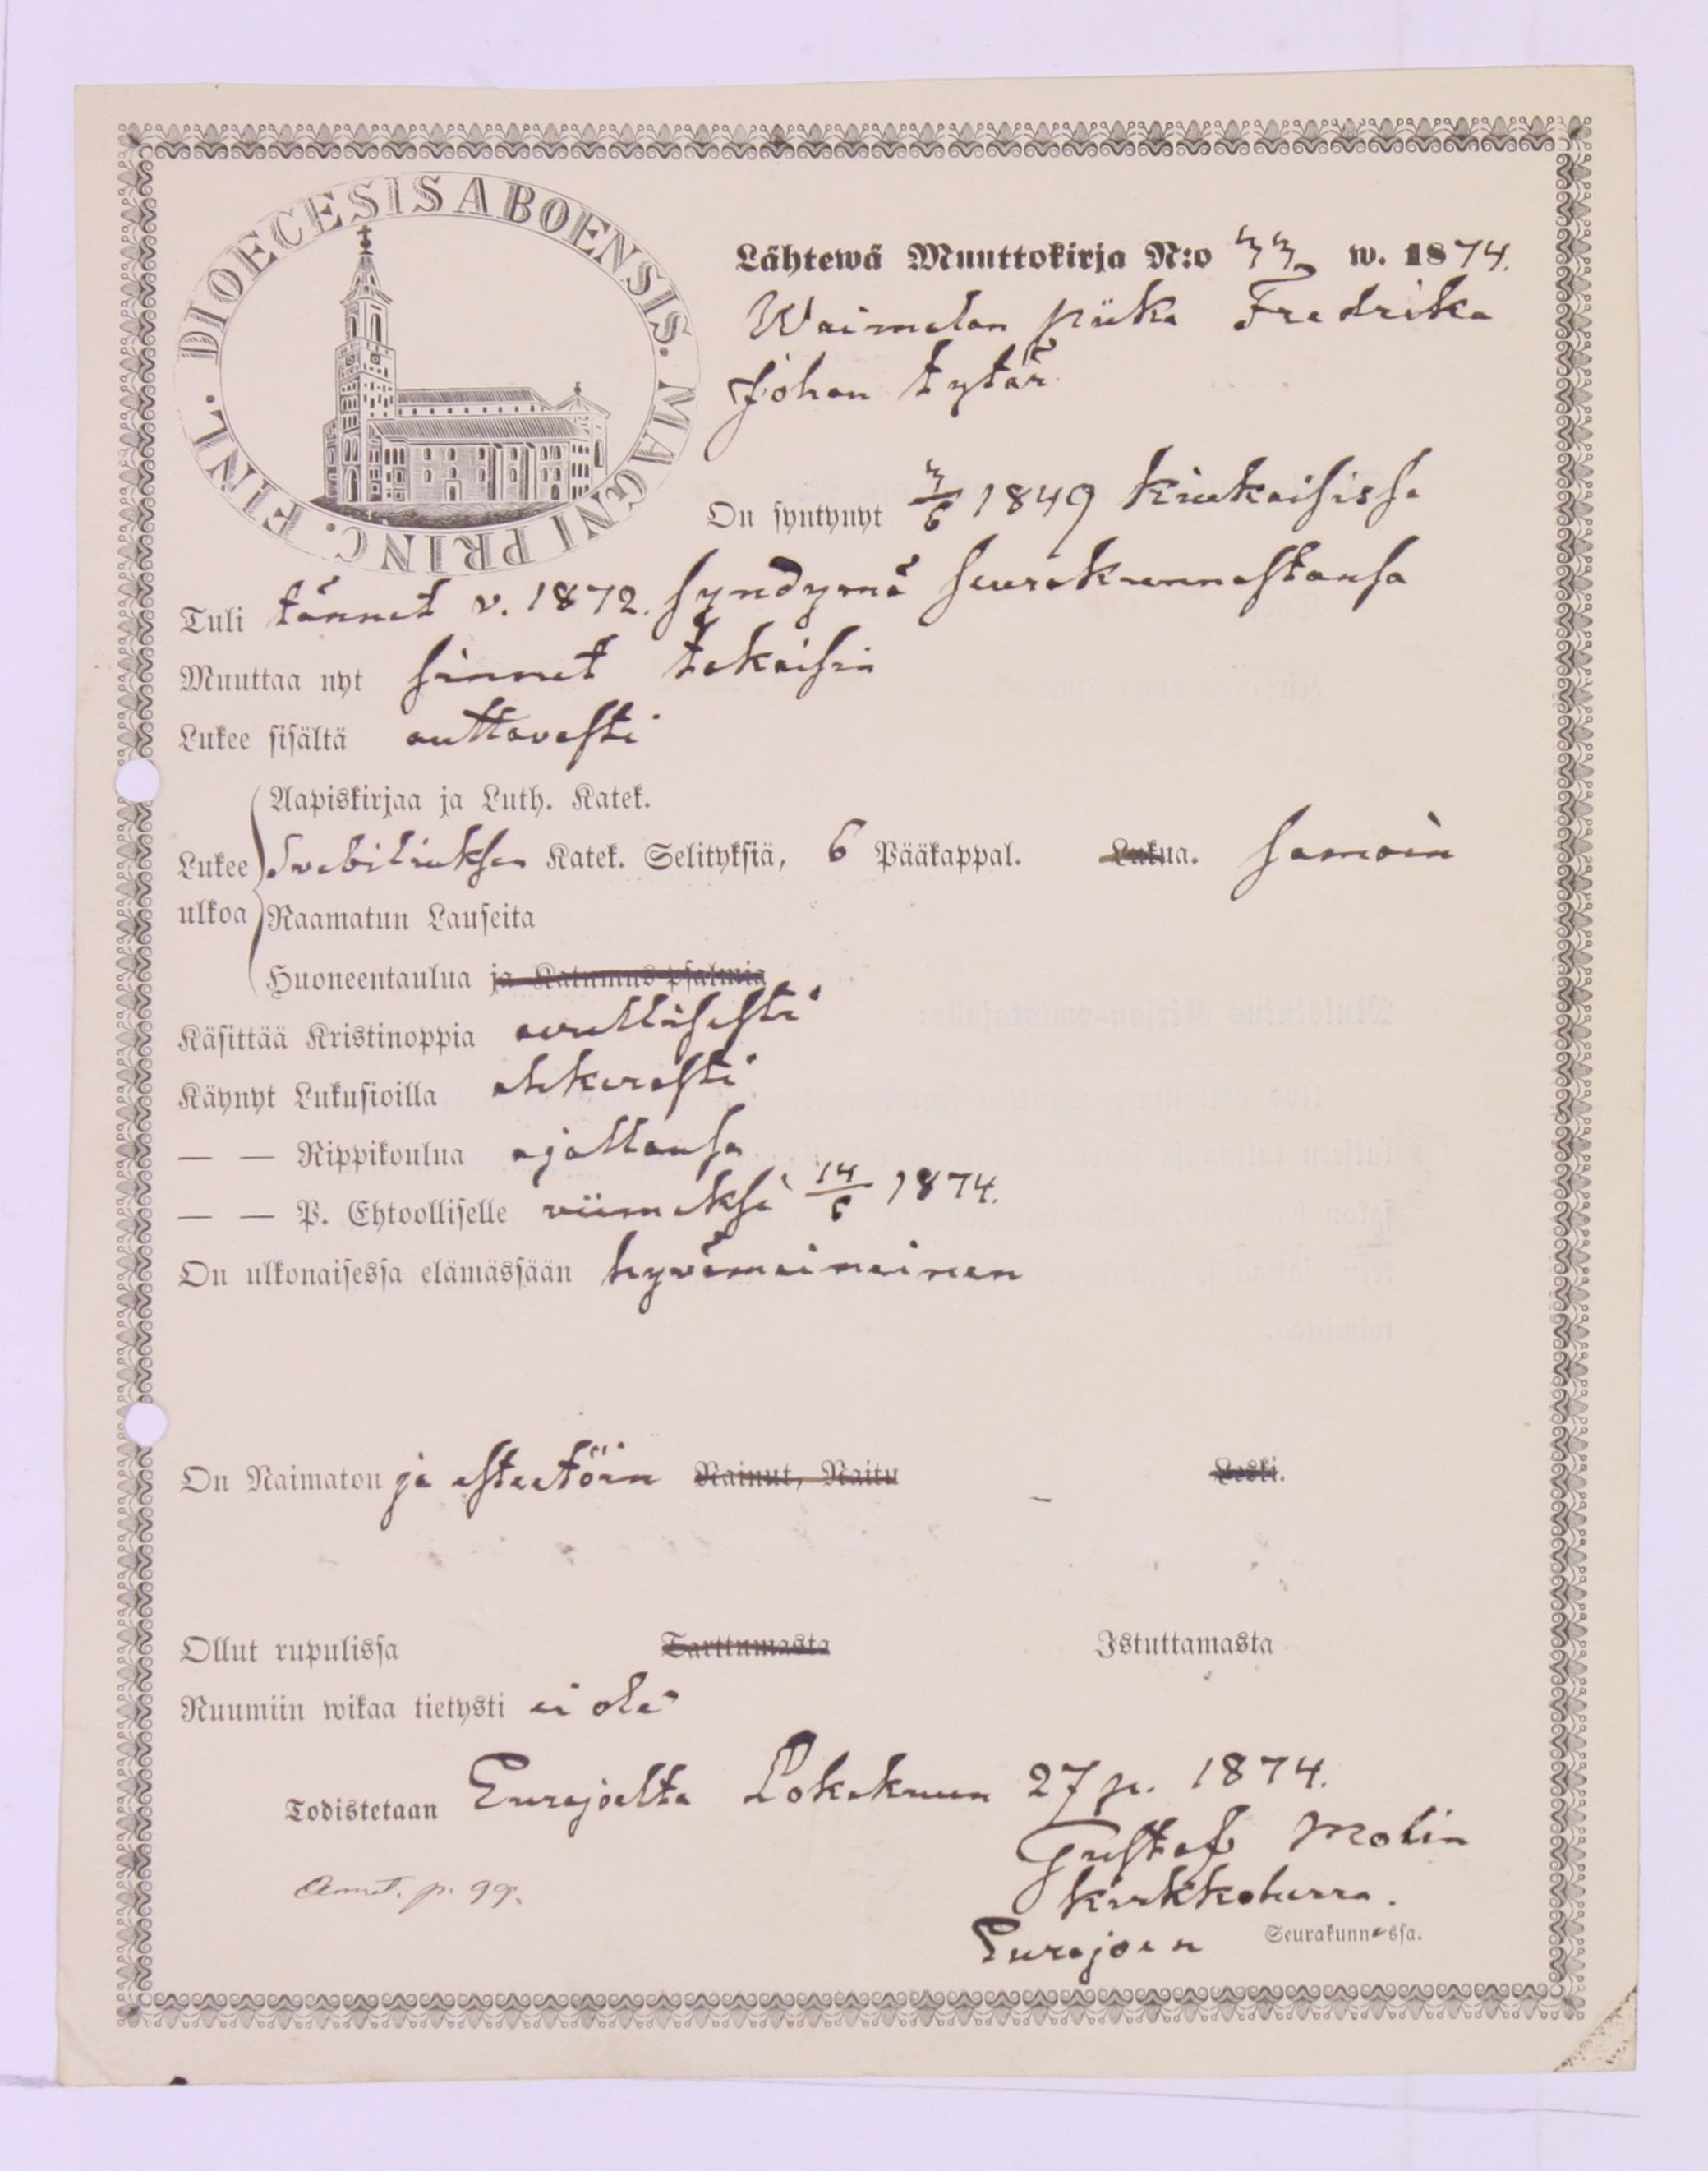 DIOECESIS ABOENSIS. MAGNI PRINC. FINL.
Lähtewä Muuttokirja N:o 33 w. 1874.
Waimelan piika Fredrika
Johan tytär
On syntynyt 3/6 1849 Kiukaisissa
Tuli tännet v. 1872. syndymä seurakunnastansa
Muuttaa nyt sinnet takaisin
Lukee sisältä auttavasti
Aapiskirjaa ja Luth. Katek.
Lukee Svebiliuksen Katek. Selityksiä, 6 Pääkappal. Lukua. samoin
ulkoa Raamatun Lauseita
Huoneentaulua ja Katumus-psalmia
Käsittää Kristinoppia avullisesti
Käynyt Lukusioilla ahkerasti
— — Rippikoulua ajallansa
— — P. Ehtoolliselle viimeksi 14/6 1874.
On ulkonaisessa elämässään hyvämaineinen
On Naimaton ja esteetöin Nainut, Naitu Leski.
Ollut rupulissa Tarttumasta Istuttamasta
Ruumiin wikaa tietysti ei ole
Todistetaan Eurajoelta Lokakuun 27 p. 1874.
Gustaf Molin
Kirkkoherra.
Annot. p. 99.
Eurajoen Seurakunnassa.